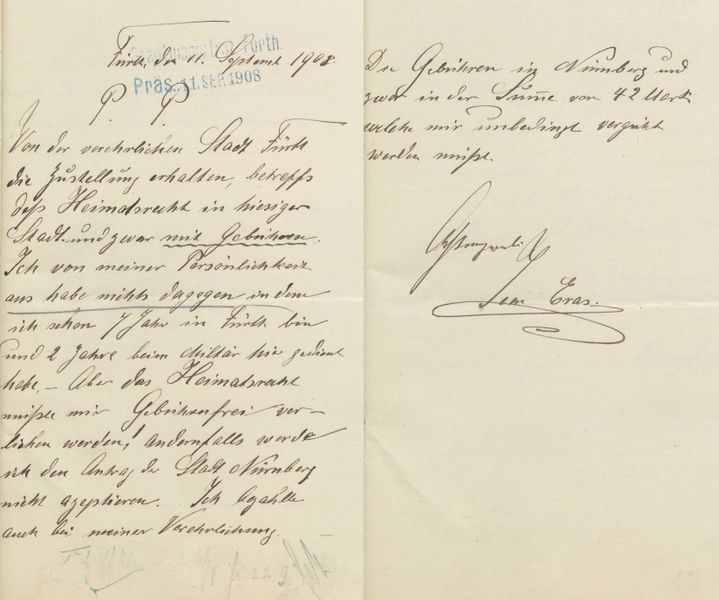 Fürth, den 11. September 1908.
Stadtmagistrat Fürth.
Präs. 11. SEP. 1908
P. P.
Von der verehrlichen Stadt Fürth
die Zustellung erhalten, betreffs
deß Heimatsrecht in hiesiger
Stadt. und zwar mit Gebühren.
Ich von meiner Persönlichkeit
aus habe nichts dagegen in dem
ich schon 7 Jahr in Fürth bin
und 2 Jahre beim Militär hie gedient
habe. – Aber das Heimatsrecht
müßte mir Gebührenfrei ver-
liehen werden! andernfalls werde
ich den Antrag der Stadt Nürnberg
nicht azeptieren. Ich bezahlte
auch bei meiner Verehelichung.
Die Gebühren in Nürnberg und
zwar in der Summe von 42 Mark
welche mir unbedingt vergütet
werden müßte.
Eras.